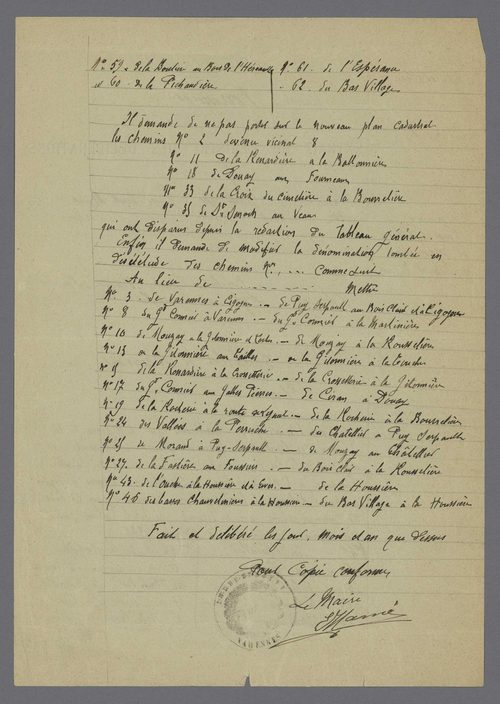 N° 59 - de la Houssière au Bois de l'Hérault
N° 61 - de l'Espérance
et 60 - de la Pichardière
- 62 du Bas Village
Il demande de ne pas porter sur le nouveau plan cadastral
les chemins N° 2 devenu vicinal 8
N° 11 de la Renardière à la Ballonnière
N° 18 de Douay aux Fourneaux
N° 33 de la Croix du cimetière à la Bourrelière
N° 35 de St Senoch au Veau
qui ont disparu depuis la rédaction du Tableau général.
Enfin il demande de modifier la dénomination tombée en
désuétude des chemins N° ... comme suit
Au lieu de Mettre
N° 3 - de Varennes à Cigogne - de Puy Serpault au Bois Claid et à Cigogne
N° 8 du Gd Cormier à Varennes - du Gd Cormier à la Martinière
N° 10 de Mouzay à la Gitonnière - de Mouzay à la Rousselière
N° 13 de la Gitonnière aux - de la Gitonnière à la Touche
N° 15 de la Renardière à la Crosetterie - de la Crosetterie à la Gitonnière
N° 17 du Gd Cormier aux Pierres - de Ciran à Douay
N° 19 de la Rocherie à la route - de la Rocherie à la Bourrelière
N° 24 des Vallées à la Perrière - du Chatellier à Puy Serpault
N° 25 de Morand à Puy-Serpault - de Mouzay au Châtellier
N° 27 de la au - du Bois Claid à la Rousselière
N° 43 de à la Houssière - de la Houssière
N° 45 des à la Houssière - du Bas Village à la Houssière
Fait et délibéré les jour, mois et an que dessus
Pour Copie conforme
Le Maire
VARENNES